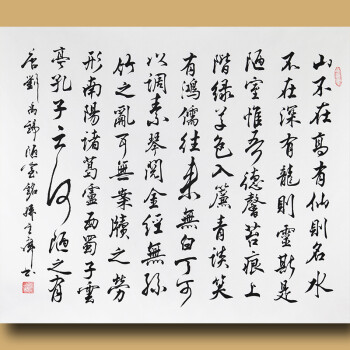 山不在高有仙則名水
不在深有龍則靈斯是
陋室惟吾德馨苔痕上
階緑草色入簾青談笑
有鴻儒往来無白丁可
以調素琴閱金經無絲
竹之亂耳無案牘之勞
形南陽諸葛廬西蜀子雲
亭孔子云何陋之有
唐劉禹錫陋室銘 书